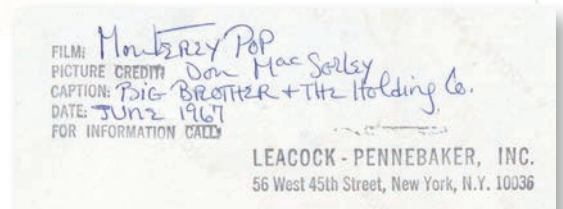 FILM: Monterey Pop
PICTURE CREDIT: Don MacSorley
CAPTION: BIG BROTHER + THE Holding Co.
DATE: JUNE 1967
FOR INFORMATION CALL:
LEACOCK - PENNEBAKER, INC.
56 West 45th Street, New York, N.Y. 10036